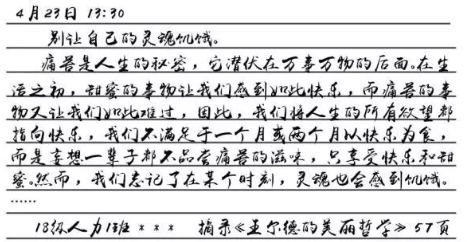 4月23日 13:30
别让自己的灵魂饥饿。
痛苦是人生的秘密，它潜伏在万事万物的后面。在生
活之初，甜蜜的事物让我们感到如此快乐，而痛苦的事
物又让我们如此难过，因此，我们将人生的所有欲望都
指向快乐，我们不满足于一个月或两个月以快乐为食，
而是妄想一辈子都不品尝痛苦的滋味，只享受快乐和甜
蜜。然而，我们忘记了在某个时刻，灵魂也会感到饥饿。
......
18级人力1班 * * * 摘录《王尔德的美丽哲学》57页